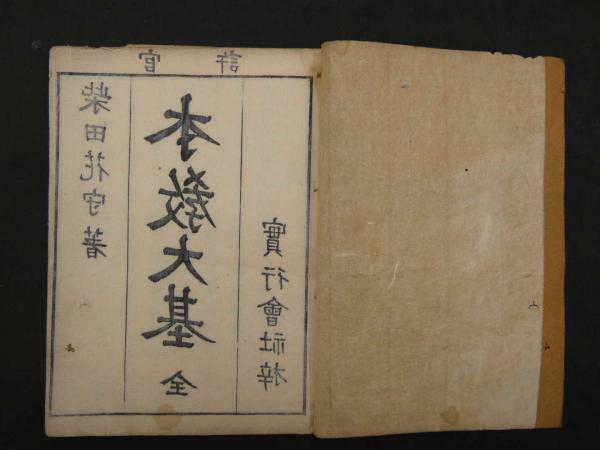 官許
柴田花守著
本教大基 全
實行會社梓